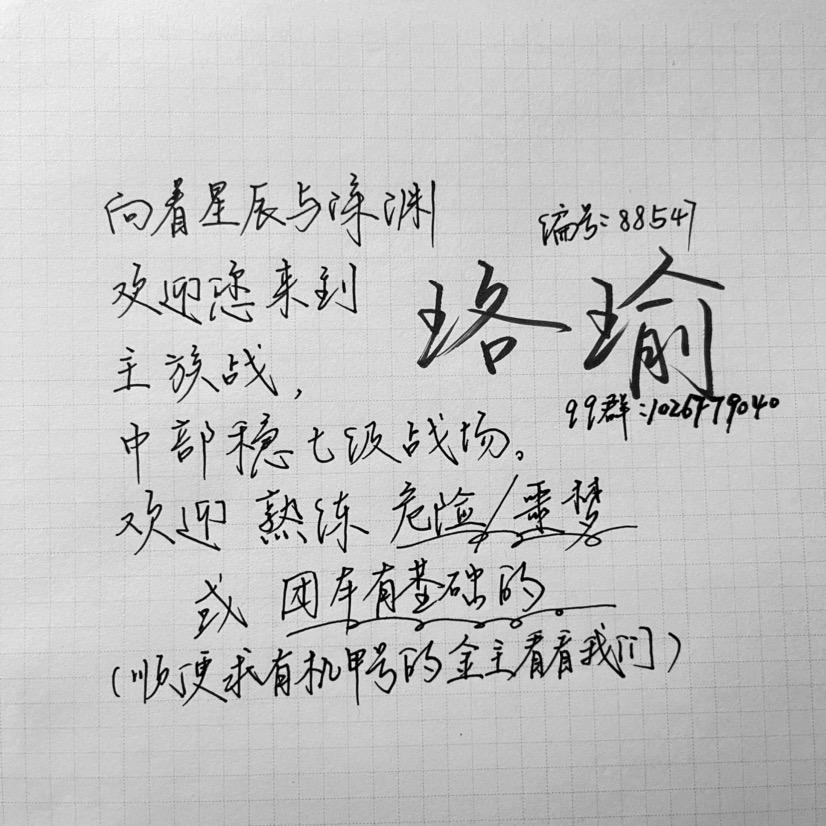 向着星辰与深渊
编号:88547
欢迎您来到
珞瑜
主族战,
qq群:1026479040
中部稳七级战场。
欢迎 熟练 危险/噩梦
或 团本有基础的
(顺便求有机甲号的金主看看我们)